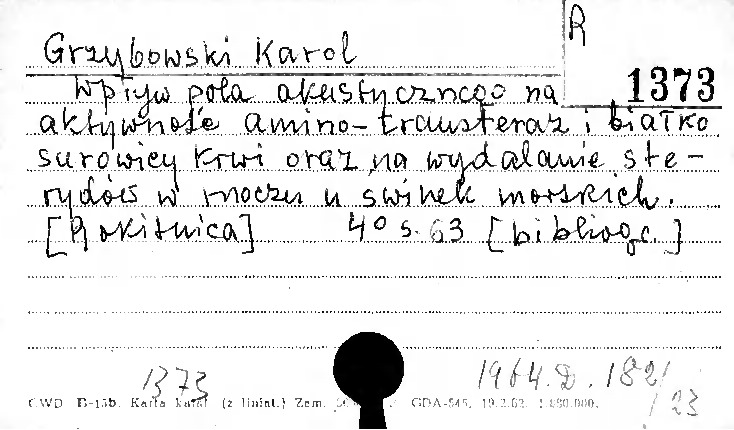 R
Grzybowski Karol
1373
Wpływ pola akustycznego na
aktywność amino-transferaz i białko
surowicy krwi oraz na wydalanie ste-
rydów w moczu u świnek morskich.
[Rokitnica] 4° s. 63 [bibliogr.]
1373
1964.D. 182/
/23
CWD B-15b. Karta katal (z liniat.) Zam. GDA-545, 19.2.62. 1.880.000.